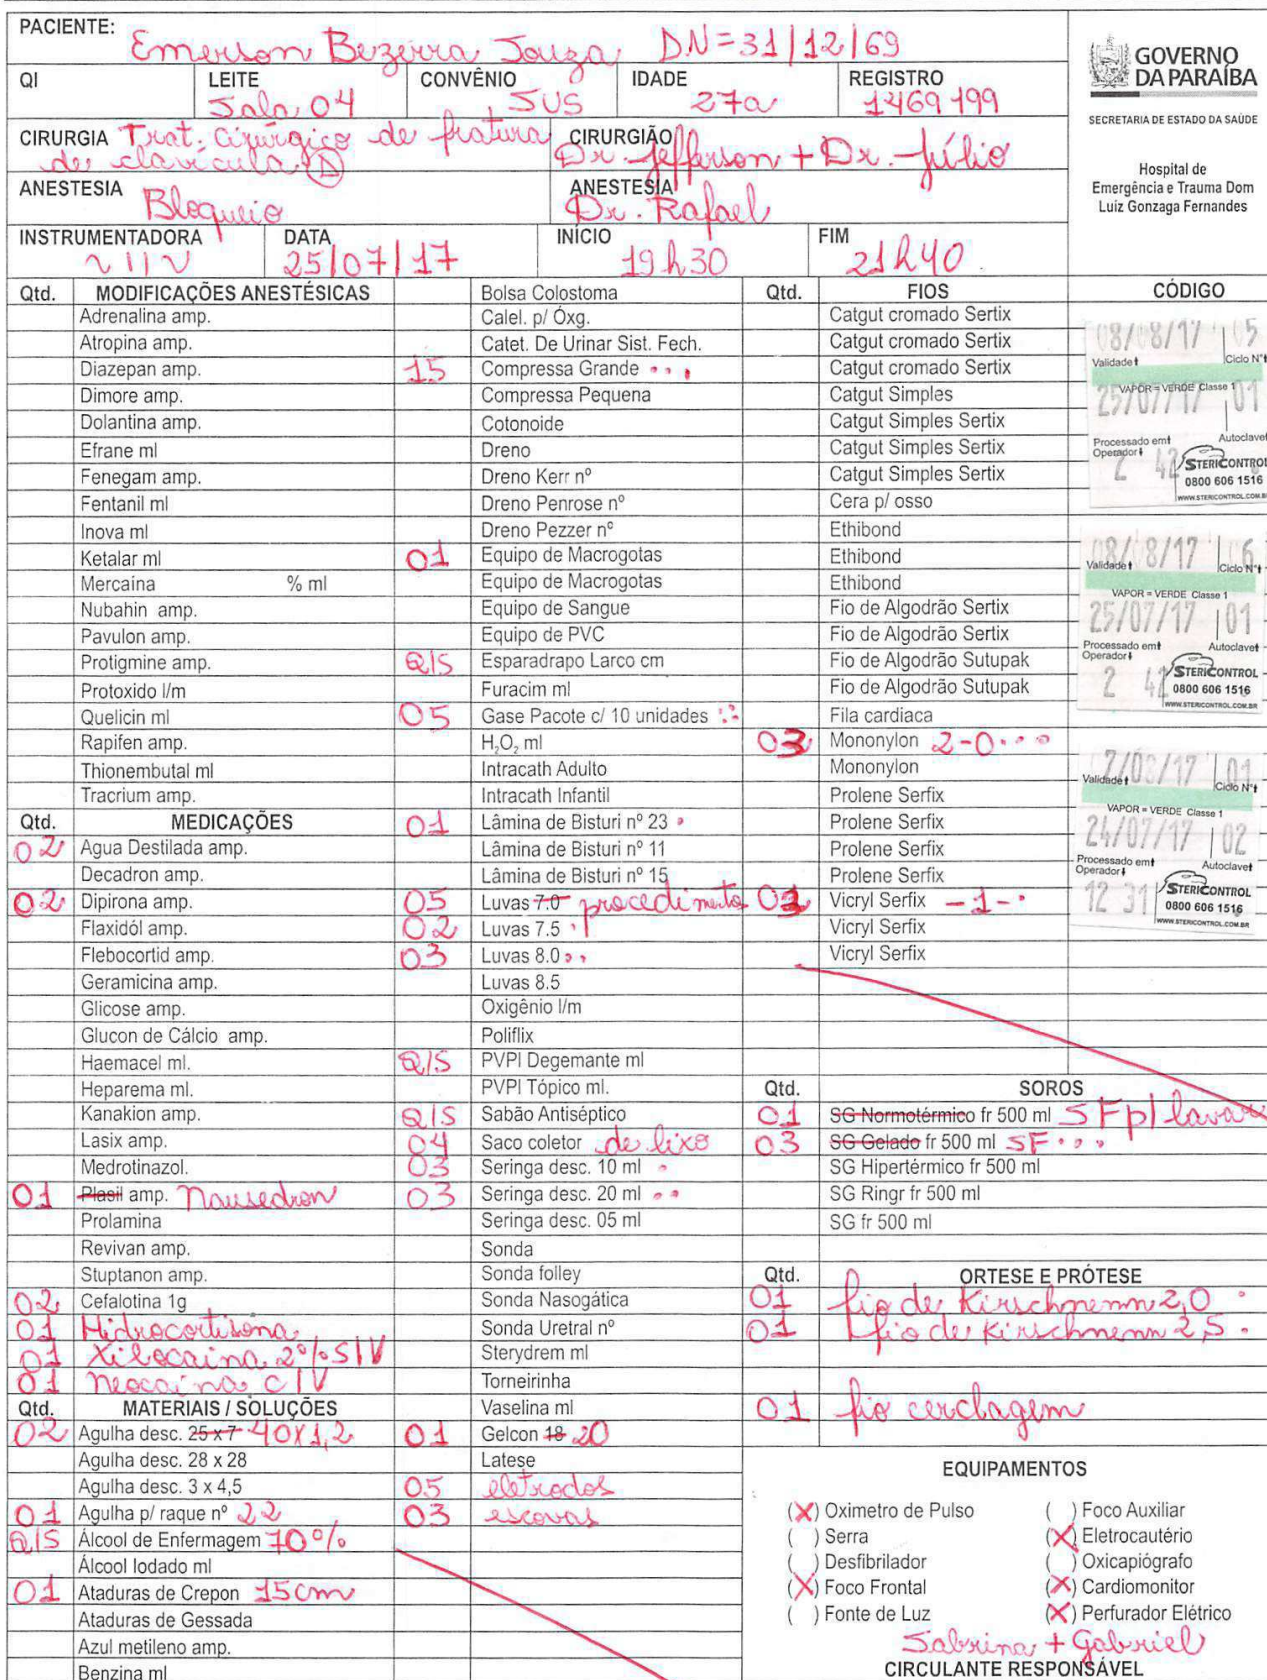 PACIENTE: Emerson Bezerra Souza DN=31/12/69
QI LEITE Sala 04 CONVÊNIO SUS IDADE 27a REGISTRO 1469199
CIRURGIA Trat. Cirúrgico de fratura de clavícula (D) CIRURGIÃO Dr. Jefferson + Dr. Júlio
ANESTESIA Bloqueio ANESTESIA Dr. Rafael
INSTRUMENTADORA DATA 25/07/17 INÍCIO 19h30 FIM 21h40
GOVERNO
DA PARAÍBA
SECRETARIA DE ESTADO DA SAÚDE
Hospital de
Emergência e Trauma Dom
Luiz Gonzaga Fernandes
Qtd. MODIFICAÇÕES ANESTÉSICAS
Adrenalina amp.
Atropina amp.
Diazepan amp.
Dimore amp.
Dolantina amp.
Efrane ml
Fenegam amp.
Fentanil ml
Inova ml
Ketalar ml
Mercaína % ml
Nubahin amp.
Pavulon amp.
Protigmine amp.
Protoxido l/m
Quelicin ml
Rapifen amp.
Thionembutal ml
Tracrium amp.
Qtd. MEDICAÇÕES
02 Agua Destilada amp.
Decadron amp.
02 Dipirona amp.
Flaxidól amp.
Flebocortid amp.
Geramicina amp.
Glicose amp.
Glucon de Cálcio amp.
Haemacel ml.
Heparema ml.
Kanakion amp.
Lasix amp.
Medrotinazol.
01 Plasil amp. Nausedron
Prolamina
Revivan amp.
Stuptanon amp.
02 Cefalotina 1g
01 Hidrocortisona
01 Xilocaina 2% S/V
01 Neocaína C/V
Qtd. MATERIAIS / SOLUÇÕES
02 Agulha desc. 25 x 7 40x1,2
Agulha desc. 28 x 28
Agulha desc. 3 x 4,5
01 Agulha p/ raque nº 22
Q/S Álcool de Enfermagem 70%
Álcool Iodado ml
01 Ataduras de Crepon 15cm
Ataduras de Gessada
Azul metileno amp.
Benzina ml
Bolsa Colostoma
Calel. p/ Óxg.
Catet. De Urinar Sist. Fech.
15 Compressa Grande
Compressa Pequena
Cotonoide
Dreno
Dreno Kerr nº
Dreno Penrose nº
Dreno Pezzer nº
01 Equipo de Macrogotas
Equipo de Macrogotas
Equipo de Sangue
Equipo de PVC
Q/S Esparadrapo Larco cm
Furacim ml
05 Gase Pacote c/ 10 unidades
H₂O₂ ml
Intracath Adulto
Intracath Infantil
01 Lâmina de Bisturi nº 23
Lâmina de Bisturi nº 11
Lâmina de Bisturi nº 15
05 Luvas 7.0 procedimento
02 Luvas 7.5
03 Luvas 8.0
Luvas 8.5
Oxigênio l/m
Poliflix
Q/S PVPI Degemante ml
PVPI Tópico ml.
Q/S Sabão Antiséptico
04 Saco coletor de lixo
03 Seringa desc. 10 ml
03 Seringa desc. 20 ml
Seringa desc. 05 ml
Sonda
Sonda folley
Sonda Nasogática
Sonda Uretral nº
Sterydrem ml
Torneirinha
Vaselina ml
01 Gelcon 18 20
Latese
05 eletrodos
03 escovas
Qtd. FIOS
Catgut cromado Sertix
Catgut cromado Sertix
Catgut cromado Sertix
Catgut Simples
Catgut Simples Sertix
Catgut Simples Sertix
Catgut Simples Sertix
Cera p/ osso
Ethibond
Ethibond
Ethibond
Fio de Algodrão Sertix
Fio de Algodrão Sertix
Fio de Algodrão Sutupak
Fio de Algodrão Sutupak
Fila cardiaca
03 Mononylon 2-0
Mononylon
Prolene Serfix
Prolene Serfix
Prolene Serfix
Prolene Serfix
Vicryl Serfix -1-
Vicryl Serfix
Vicryl Serfix
Qtd. SOROS
01 SG Normotérmico fr 500 ml SF p/ lavar
03 SG Gelado fr 500 ml SF
SG Hipertérmico fr 500 ml
SG Ringr fr 500 ml
SG fr 500 ml
Qtd. ORTESE E PRÓTESE
01 fio de Kirschnemn 2,0
01 fio de Kirschnemn 2,5
01 fio cerclagem
EQUIPAMENTOS
(X) Oximetro de Pulso ( ) Foco Auxiliar
( ) Serra (X) Eletrocautério
( ) Desfibrilador ( ) Oxicapiógrafo
(X) Foco Frontal (X) Cardiomonitor
( ) Fonte de Luz (X) Perfurador Elétrico
Sabrina + Gabriel
CIRCULANTE RESPONSÁVEL
CÓDIGO
08/08/17 05
Validade Ciclo Nº
VAPOR = VERDE Classe 1
25/07/17 01
Processado em Autoclave
Operador
2 42 STERICONTROL
0800 606 1516
WWW.STERICONTROL.COM.BR
08/08/17 06
Validade Ciclo Nº
VAPOR = VERDE Classe 1
25/07/17 01
Processado em Autoclave
Operador
2 42 STERICONTROL
0800 606 1516
WWW.STERICONTROL.COM.BR
01
Validade Ciclo Nº
VAPOR = VERDE Classe 1
24/07/17 02
Processado em Autoclave
Operador
12 31 STERICONTROL
0800 606 1516
WWW.STERICONTROL.COM.BR